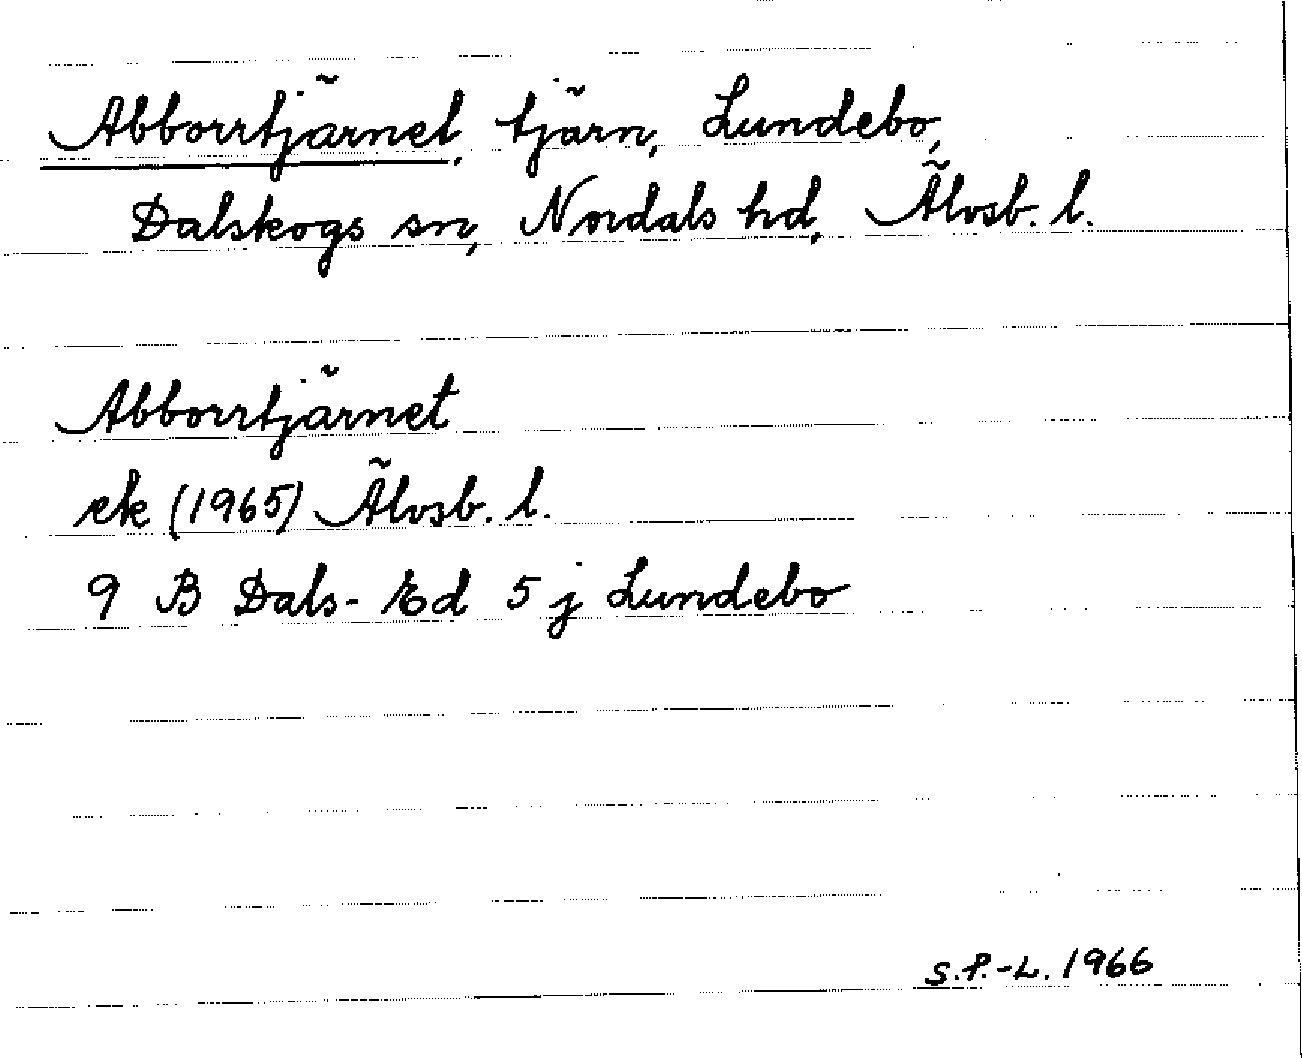 Abborrtjärnet, tjärn, Lundebo,
Dalskogs sn, Nordals hd, Älvsb. l.
Abborrtjärnet
ek (1965) Älvsb. l.
9 B Dals-Ed 5 j Lundebo
S.P.-L. 1966